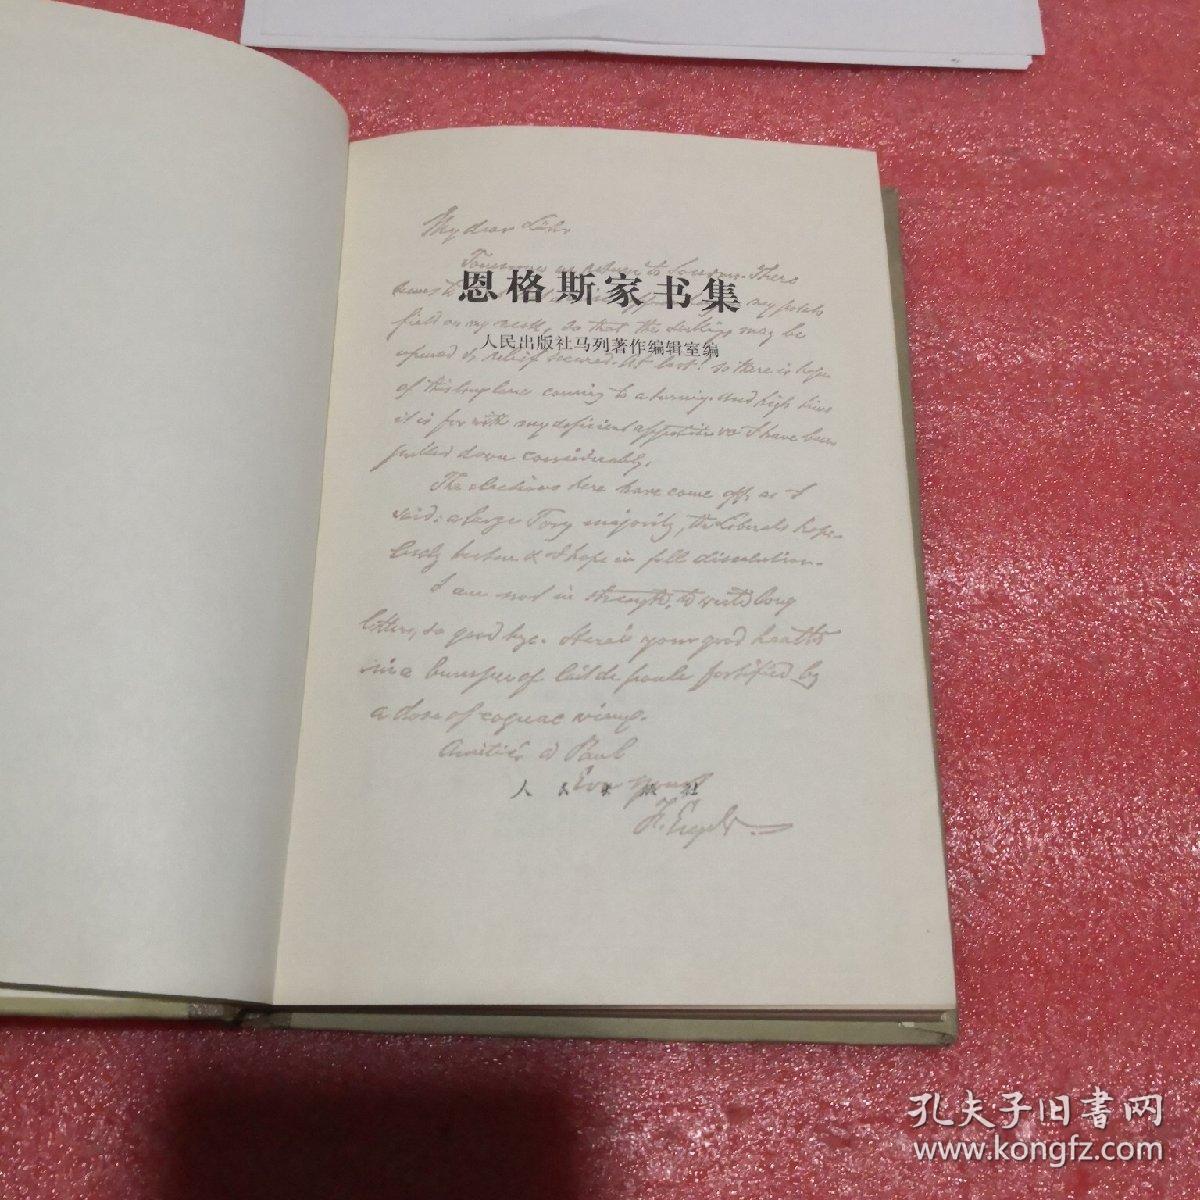 My dear Löhr
Tomorrow we return to London. There
seems to my potato
恩格斯家书集
field on my neck, so that the swellings may be
人民出版社马列著作编辑室编
opened & relief secured. At last! so there is hope
of this long lane coming to a turning. And high time
it is for with my deficient appetite &c I have been
pulled down considerably.
The elections here have come off as I
said: a large Tory majority, the Liberals hope-
lessly beaten & I hope in full dissolution.
I am not in strength to write long
letters, so good bye. Here's your good health
in a bumper of lait de poule fortified by
a dose of cognac vieux.
Amitiés à Paul
Ever yours
人 民 出 版 社
F. Engels
孔夫子旧書网
www.kongfz.com